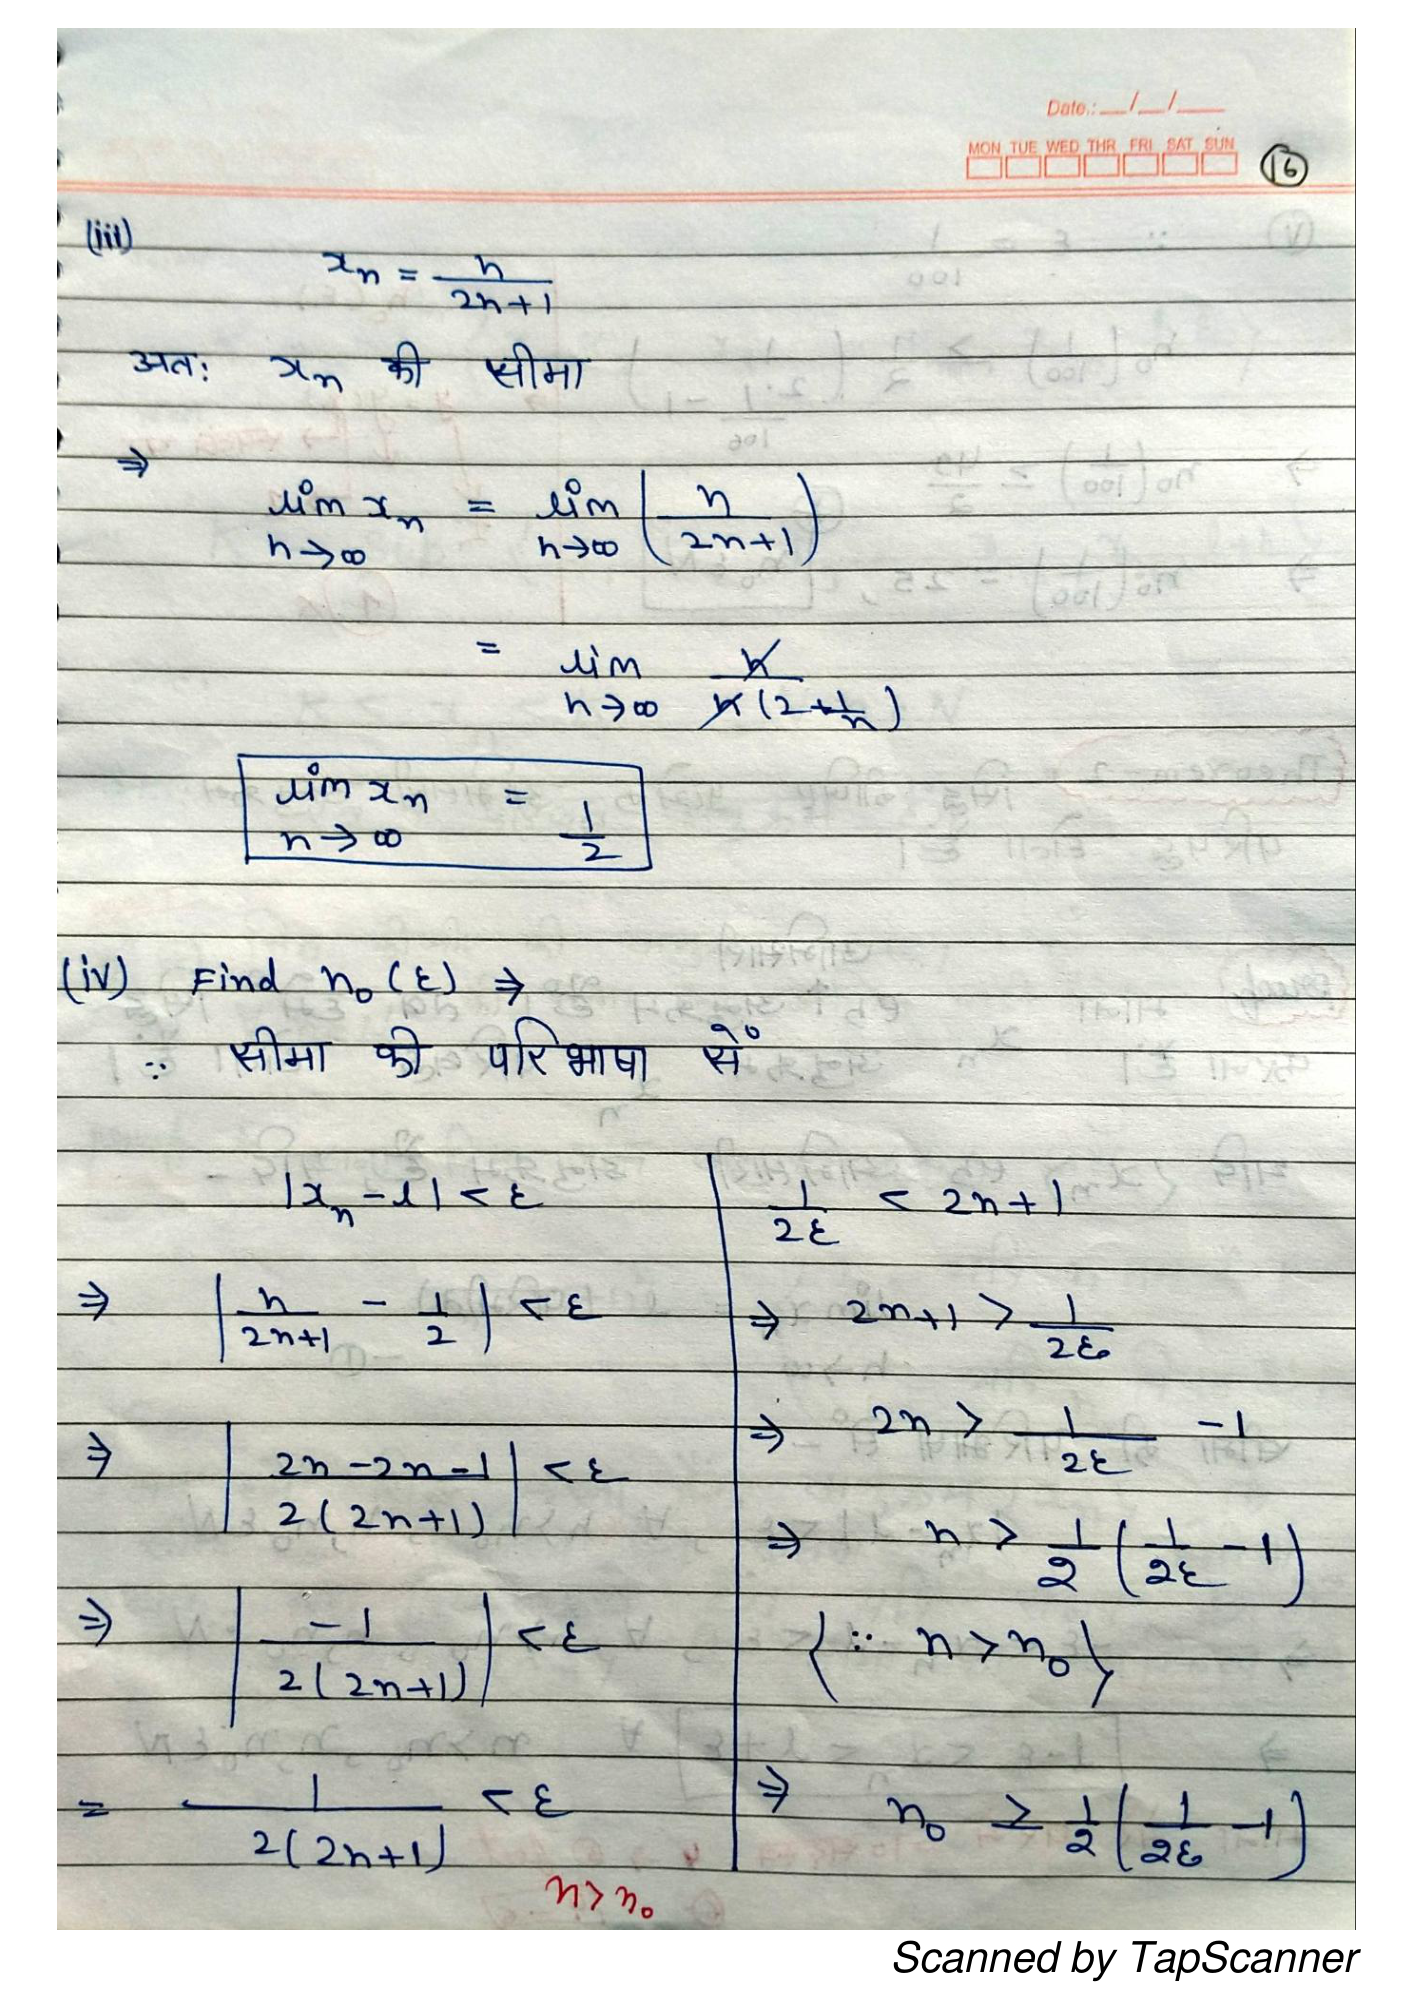 Date.: __/__/____
MON TUE WED THR FRI SAT SUN
16
(iii)
xₙ = n/(2n+1)
अतः xₙ की सीमा
⇒
lim n→∞ xₙ = lim n→∞ (n/(2n+1))
= lim n→∞ n/(n(2+1/n))
lim n→∞ xₙ = 1/2
(iv) Find n₀(ε) ⇒
∵ सीमा की परिभाषा सें
|xₙ - l| < ε
⇒ |n/(2n+1) - 1/2| < ε
⇒ |(2n-2n-1)/(2(2n+1))| < ε
⇒ |-1/(2(2n+1))| < ε
= 1/(2(2n+1)) < ε
n > n₀
1/2ε < 2n+1
⇒ 2n+1 > 1/2ε
⇒ 2n > 1/2ε - 1
⇒ n > 1/2 (1/2ε - 1)
{∵ n > n₀}
⇒ n₀ ≥ 1/2 (1/2ε - 1)
Scanned by TapScanner